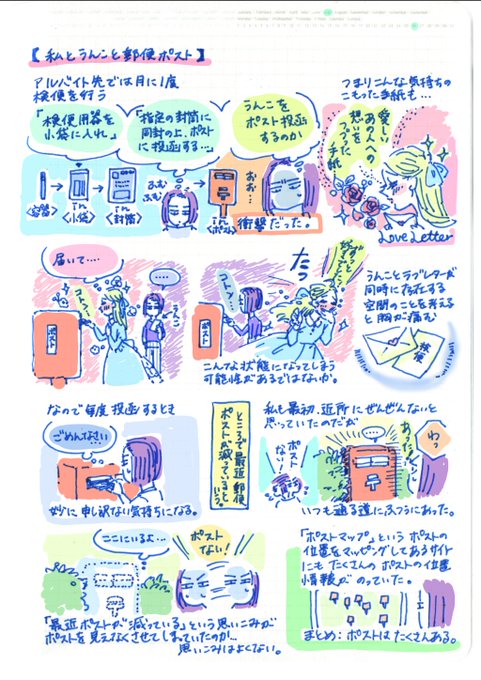 【私とうんこと郵便ポスト】
アルバイト先では月に1度
検便を行う
「検便用器を
小袋に入れ」
「指定の封筒に
同封の上、ポスト
に投函する…」
うんこを
ポスト投函
するのか
<容器>
<小袋>
<封筒>
ふむ
ふむ
<ポスト>
おお…
衝撃だった。
つまりこんな気持ちの
こもった手紙も…
愛しい
あの人への
想いを
手紙
Love Letter
届いて…
コトン…
ポスト
……
うんこ
コトン…
ポスト
だっ
こんな状態になってしまう
可能性があるではないか。
うんことラブレターが
同時に存在する
空間のことを考える
と胸が痛む
検便
なので毎度投函するとき
ごめんなさい
妙に申し訳ない気持ちになる。
ところで最近郵便
ポストが減っているという
私も最初、近所にぜんぜんないと
思っていたのだが
ポスト
ない!
…
あった!
わっ
いつも通る道にふつうにあった。
ここにいるよ…
ポスト
ない!
「最近ポストが減っている」という思いこみが
ポストを見えなくさせてしまっていたのか…
思いこみはよくない。
「ポストマップ」というポストの
位置をマッピングしてあるサイト
にもたくさんのポストの位置
情報がのっていた。
まとめ：ポストはたくさんある。